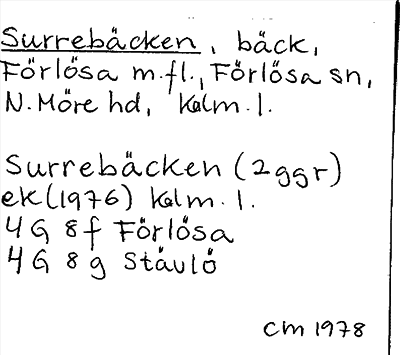 Surrebäcken, bäck,
Förlösa m.fl., Förlösa sn,
N. Möre hd, Kalm. l.
Surrebäcken (2ggr)
ek (1976) Kalm. l.
4G 8f Förlösa
4G 8g Stävlö
CM 1978